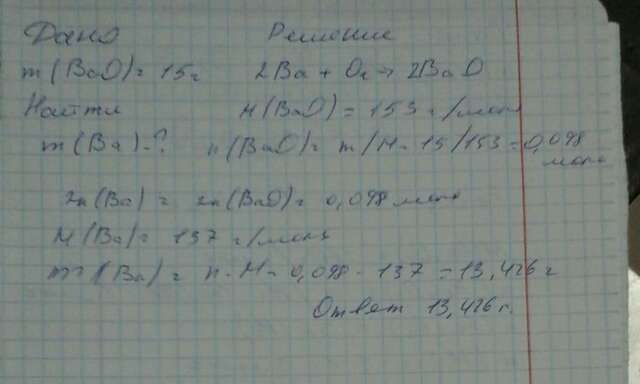 Дано Решение
m(BaO)= 15г 2Ba + O2 → 2BaO
Найти M(BaO) = 153 г/моль
m(Ba)-? n(BaO)= m/M = 15/153 = 0,098 моль
2n(Ba) = 2n(BaO)= 0,098 моль
M(Ba)= 137 г/моль
m(Ba) = n·M = 0,098 · 137 = 13,426 г
Ответ 13,426 г.